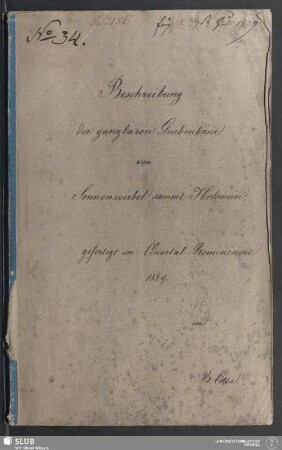 No 34.
Beschreibung
der gangbaren Grubenbaue
von
Sonnenwirbel sammt Holewein
gefertigt im Quartal Reminiscere
1829.
SLUB
Wir führen Wissen.